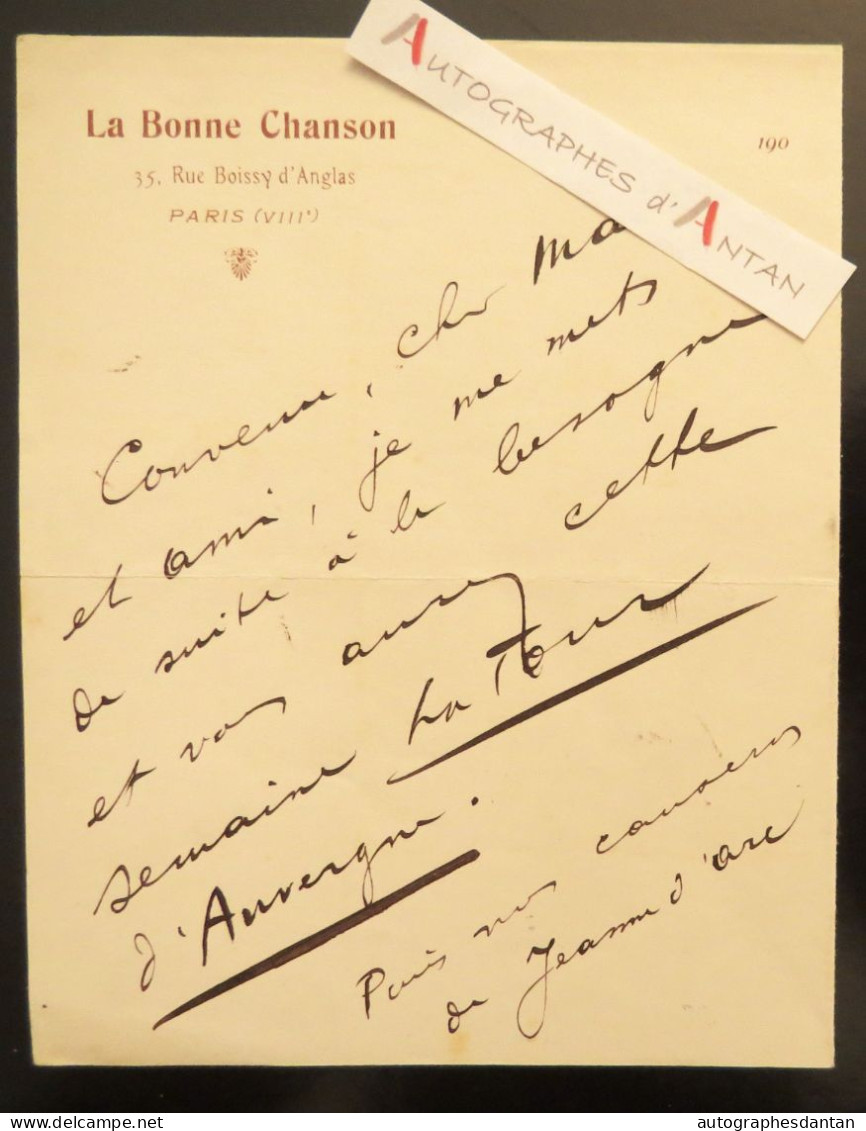 AUTOGRAPHES d'ANTAN
La Bonne Chanson
35, Rue Boissy d'Anglas
PARIS (VIIIe)
190
Convenu, cher Ma
et ami, je me mets
de suite à la besogne
et vous aurez cette
semaine La Tour
d'Auvergne.
Puis nous causerons
de Jeanne d'Arc
autographesdantan